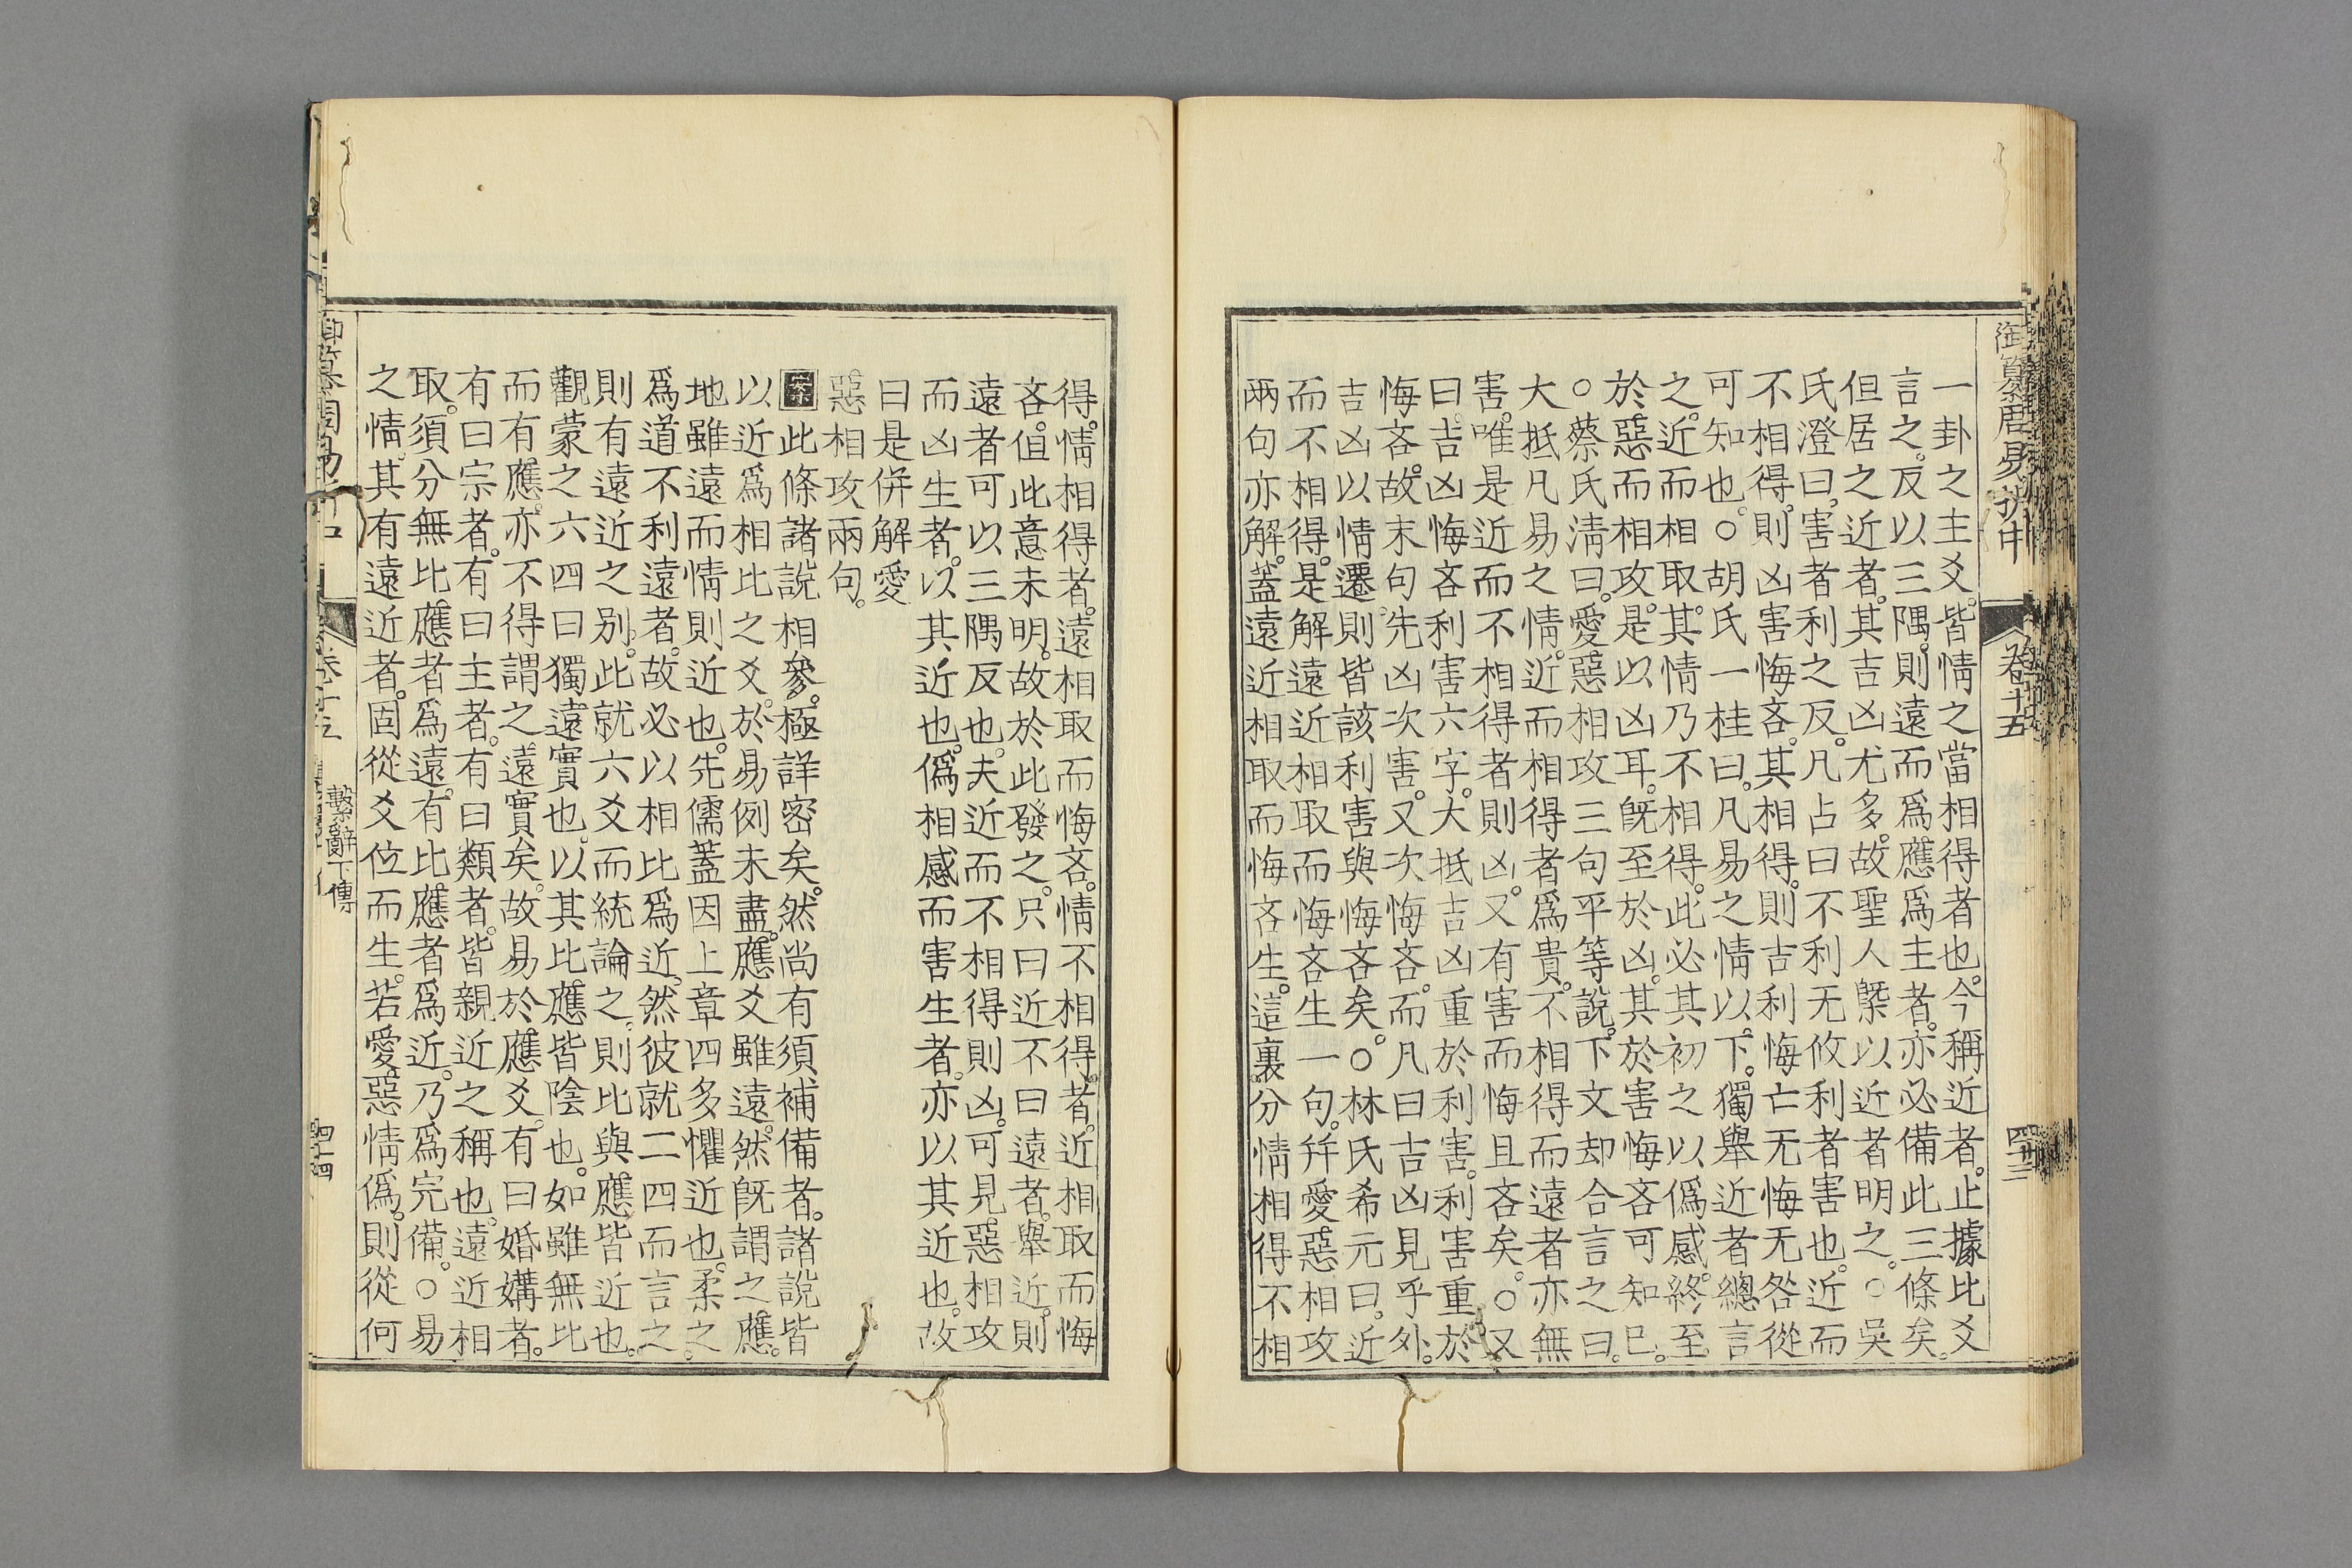 御纂周易折中
卷十五
一卦之主爻。皆情之當相得者也。今稱近者。止據比爻
言之。反以三隅。則遠而爲應爲主者。亦必備此三條矣。
但居之近者。其吉凶尤多。故聖人槩以近者明之。○吳
氏澄曰。害者利之反。凡占曰不利无攸利者害也。近而
不相得。則凶害悔吝。其相得。則吉利悔亡无悔无咎從
可知也。○胡氏一桂曰。凡易之情以下。獨舉近者總言
之。近而相取。其情乃不相得。此必其初之以僞感。終至
於惡而相攻。是以凶耳。旣至於凶。其於害悔吝可知已。
○蔡氏淸曰。愛惡相攻三句平等說。下文却合言之曰。
大抵凡易之情。近而相得者爲貴。不相得而遠者亦無
害。唯是近而不相得者則凶。又有害而悔且吝矣。○又
曰。吉凶悔吝利害六字。大抵吉凶重於利害。利害重於
悔吝。故末句先凶次害。又次悔吝。而凡曰吉凶見乎外。
吉凶以情遷。則皆該利害與悔吝矣。○林氏希元曰。近
而不相得。是解遠近相取而悔吝生一句。幷愛惡相攻
兩句亦解。蓋遠近相取而悔吝生。這裏分情相得不相
得。情相得者。遠相取而悔吝。情不相得者。近相取而悔
吝。但此意未明。故於此發之。只曰近不曰遠者。舉近。則
遠者可以三隅反也。夫近而不相得則凶。可見。惡相攻
而凶生者。以其近也。僞相感而害生者。亦以其近也。故
曰是併解愛
惡相攻兩句。
案此條諸說相參。極詳密矣。然尚有須補備者。諸說皆
以近爲相比之爻。於易例未盡。應爻雖遠。然旣謂之應。
地雖遠而情則近也。先儒蓋因上章四多懼近也。柔之
爲道不利遠者。故必以相比爲近。然彼就二四而言之。
則有遠近之別。此就六爻而統論之。則比與應皆近也。
觀蒙之六四曰獨遠實也。以其比應皆陰也。如雖無比
而有應。亦不得謂之遠實矣。故易於應爻。有曰婚媾者。
有曰宗者。有曰主者。有曰類者。皆親近之稱也。遠近相
取。須分無比應者爲遠。有比應者爲近。乃爲完備。○易
之情。其有遠近者。固從爻位而生。若愛惡情僞。則從何
繫辭下傳